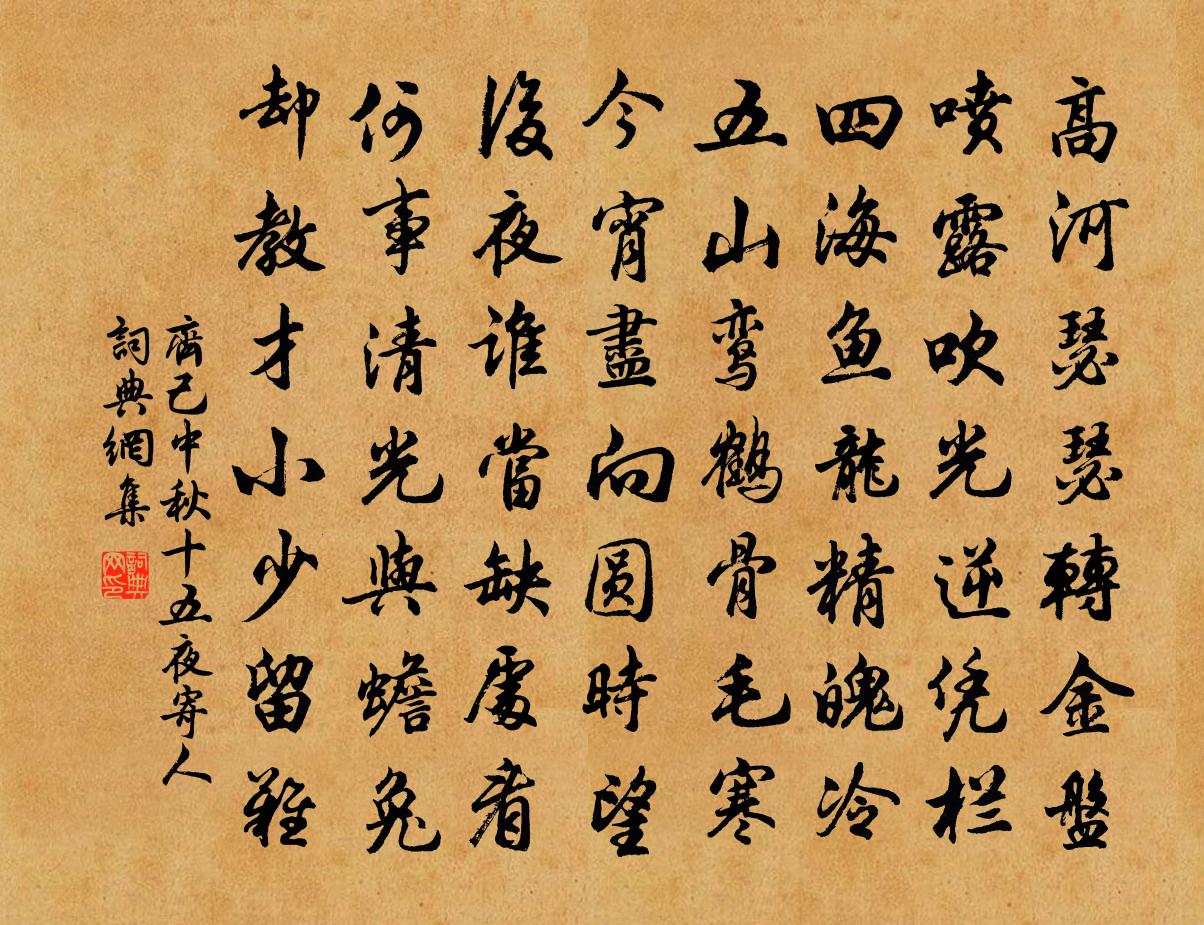 高河瑟瑟轉金盤
噴露吹光逆凭栏
四海魚龍精魄冷
五山鸾鶴骨毛寒
今宵盡向圆時望
後夜誰當缺處看
何事清光與蟾兔
却教才小少留難
齊己中秋十五夜寄人
詞典網集
詞典网印